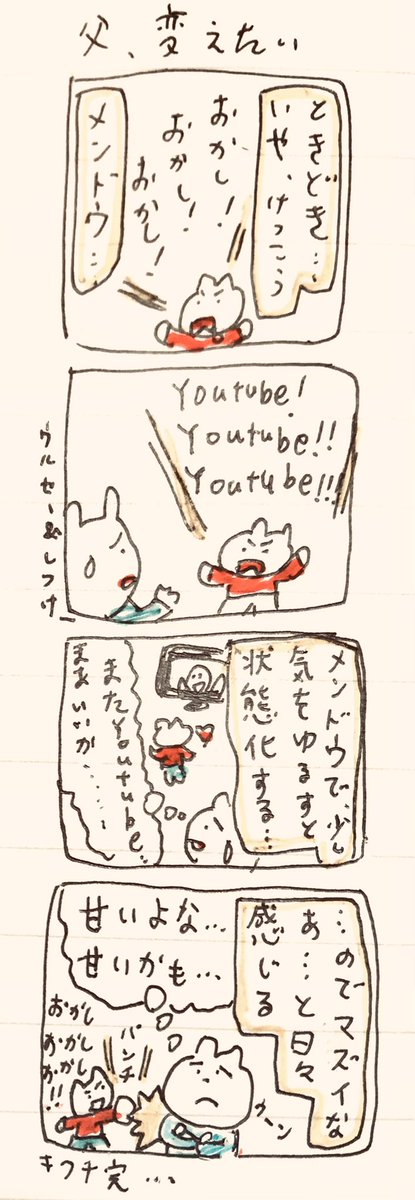 父、変えたい
ときどき…
いや、けっこう
おかし!
おかし!
おかし!
メンドウ…
Youtube!
Youtube!!
Youtube!!!
ウルセー&しつけー
メンドウで、少し
気をゆるすと
状態化する…
またYoutube…
まあいいか……
…のでマズイな
あ…と日々
感じる
甘いよな…
甘いかも…
パンチ
おかし
おかし
おかし!!
ウーン
キフチ完…